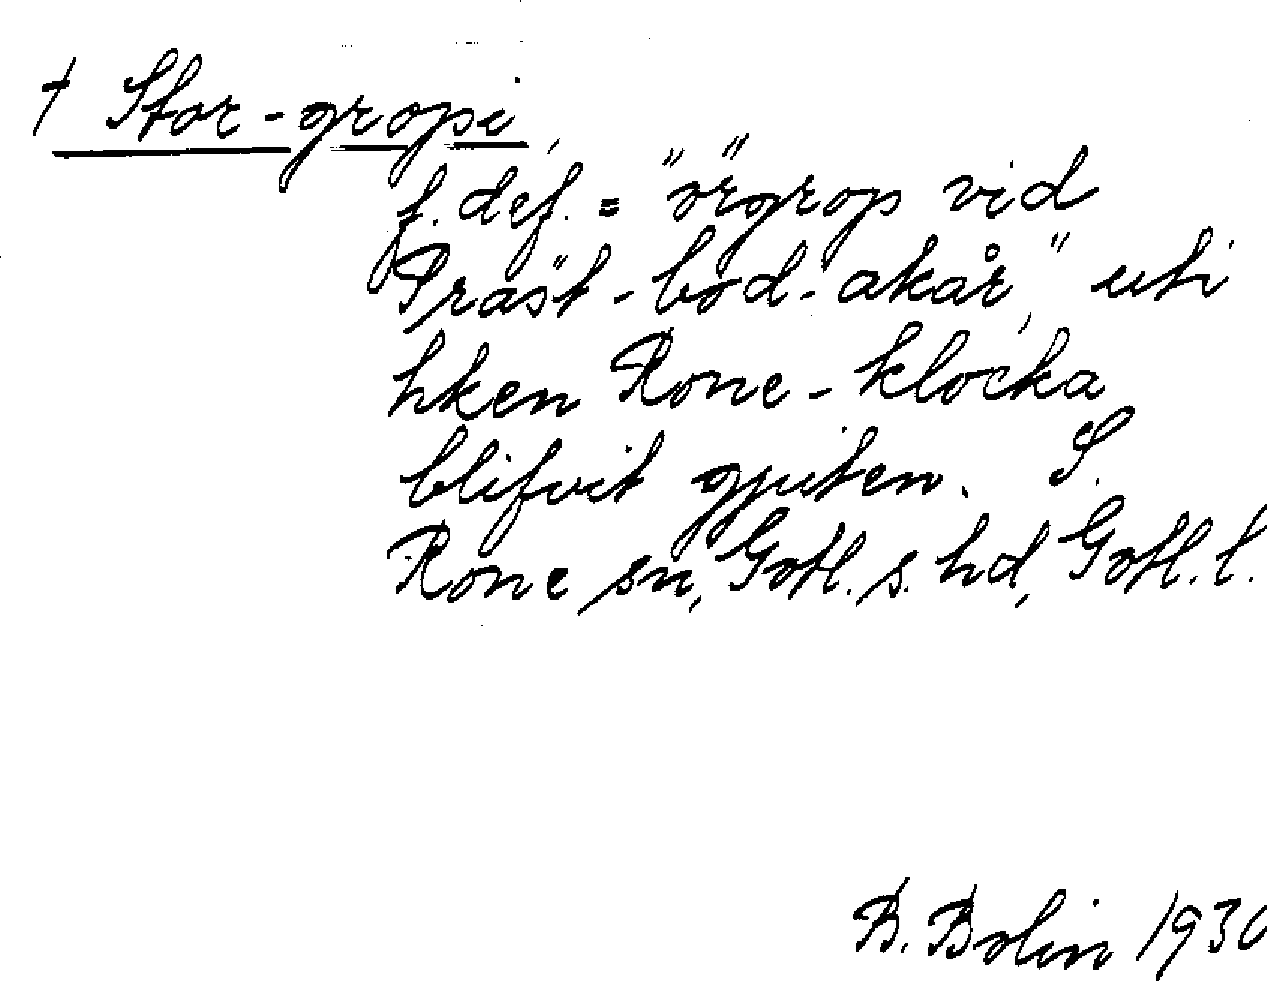 † Stor-gropi,
f. def. = "örgrop vid
Präst-bod-akår," uti
hken Rone-klocka
blifvit gjuten. S.
Rone sn, Gotl. s. hd, Gotl. l.
B. Bolin 1930